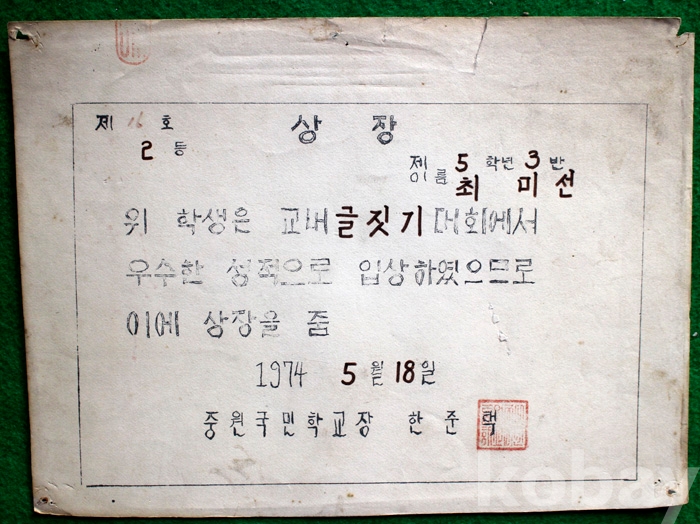 제 16 호
상 장
2 등
제 5 학년 3 반
이름 최 미 선
위 학생은 교내 글짓기 대회에서
우수한 성적으로 입상하였으므로
이에 상장을 줌
1974 5 월 18 일
중원국민학교장 한 준 택
kobay